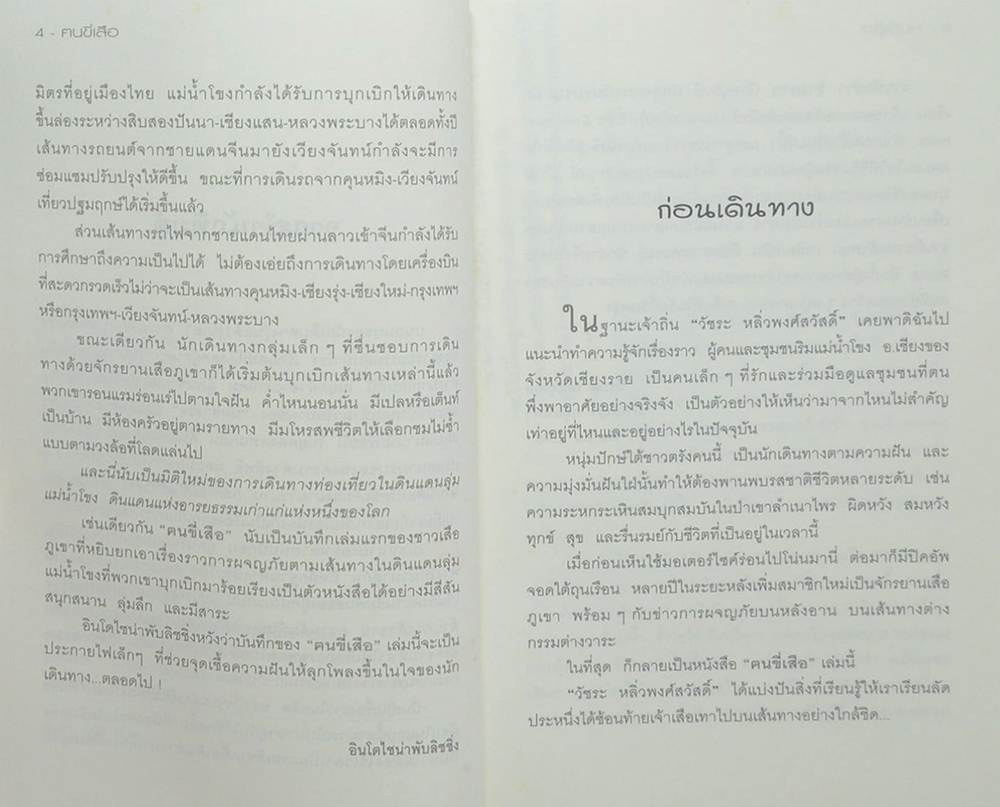 4 - ฅนขี่เสือ
มิตรที่อยู่เมืองไทย แม่น้ำโขงกำลังได้รับการบุกเบิกให้เดินทาง
ขึ้นล่องระหว่างสิบสองปันนา-เชียงแสน-หลวงพระบางได้ตลอดทั้งปี
เส้นทางรถยนต์จากชายแดนจีนมายังเวียงจันทน์กำลังจะมีการ
ซ่อมแซมปรับปรุงให้ดีขึ้น ขณะที่การเดินรถจากคุนหมิง-เวียงจันทน์
เที่ยวปฐมฤกษ์ได้เริ่มขึ้นแล้ว
ส่วนเส้นทางรถไฟจากชายแดนไทยผ่านลาวเข้าจีนกำลังได้รับ
การศึกษาถึงความเป็นไปได้ ไม่ต้องเอ่ยถึงการเดินทางโดยเครื่องบิน
ที่สะดวกรวดเร็วไม่ว่าจะเป็นเส้นทางคุนหมิง-เชียงรุ่ง-เชียงใหม่-กรุงเทพฯ
หรือกรุงเทพฯ-เวียงจันทน์-หลวงพระบาง
ขณะเดียวกัน นักเดินทางกลุ่มเล็ก ๆ ที่ชื่นชอบการเดิน
ทางด้วยจักรยานเสือภูเขาก็ได้เริ่มต้นบุกเบิกเส้นทางเหล่านี้แล้ว
พวกเขารอนแรมร่อนเร่ไปตามใจฝัน ค่ำไหนนอนนั่น มีเปลหรือเต็นท์
เป็นบ้าน มีห้องครัวอยู่ตามรายทาง มีมโหรสพชีวิตให้เลือกชมไม่ซ้ำ
แบบตามวงล้อที่โลดแล่นไป
และนี่นับเป็นมิติใหม่ของการเดินทางท่องเที่ยวในดินแดนลุ่ม
แม่น้ำโขง ดินแดนแห่งอารยธรรมเก่าแก่แห่งหนึ่งของโลก
เช่นเดียวกัน “ฅนขี่เสือ” นับเป็นบันทึกเล่มแรกของชาวเสือ
ภูเขาที่หยิบยกเอาเรื่องราวการผจญภัยตามเส้นทางในดินแดนลุ่ม
แม่น้ำโขงที่พวกเขาบุกเบิกมาร้อยเรียงเป็นตัวหนังสือได้อย่างมีสีสัน
สนุกสนาน ลุ่มลึก และมีสาระ
อินโดไชน่าพับลิชชิ่งหวังว่าบันทึกของ “ฅนขี่เสือ” เล่มนี้จะเป็น
ประกายไฟเล็กๆ ที่ช่วยจุดเชื้อความฝันให้ลุกโพลงขึ้นในใจของนัก
เดินทาง...ตลอดไป !
อินโดไชน่าพับลิชชิ่ง
ก่อนเดินทาง
ในฐานะเจ้าถิ่น “วัชระ หลิ่วพงศ์สวัสดิ์” เคยพาดิฉันไป
แนะนำทำความรู้จักเรื่องราว ผู้คนและชุมชนริมแม่น้ำโขง อ.เชียงของ
จังหวัดเชียงราย เป็นคนเล็ก ๆ ที่รักและร่วมมือดูแลชุมชนที่ตน
พึ่งพาอาศัยอย่างจริงจัง เป็นตัวอย่างให้เห็นว่ามาจากไหนไม่สำคัญ
เท่าอยู่ที่ไหนและอยู่อย่างไรในปัจจุบัน
หนุ่มปักษ์ใต้ชาวตรังคนนี้ เป็นนักเดินทางตามความฝัน และ
ความมุ่งมั่นฝันใฝ่นั้นทำให้ต้องพานพบรสชาติชีวิตหลายระดับ เช่น
ความระหกระเหินสมบุกสมบันในป่าเขาลำเนาไพร ผิดหวัง สมหวัง
ทุกข์ สุข และรื่นรมย์กับชีวิตที่เป็นอยู่ในเวลานี้
เมื่อก่อนเห็นใช้มอเตอร์ไซค์ร่อนไปโน่นมานี่ ต่อมาก็มีปิคอัพ
จอดใต้ถุนเรือน หลายปีในระยะหลังเพิ่มสมาชิกใหม่เป็นจักรยานเสือ
ภูเขา พร้อม ๆ กับข่าวการผจญภัยบนหลังอาน บนเส้นทางต่าง
กรรมต่างวาระ
ในที่สุด ก็กลายเป็นหนังสือ “ฅนขี่เสือ” เล่มนี้
“วัชระ หลิ่วพงศ์สวัสดิ์” ได้แบ่งปันสิ่งที่เรียนรู้ให้เราเรียนลัด
ประหนึ่งได้ซ้อนท้ายเจ้าเสือเทาไปบนเส้นทางอย่างใกล้ชิด...